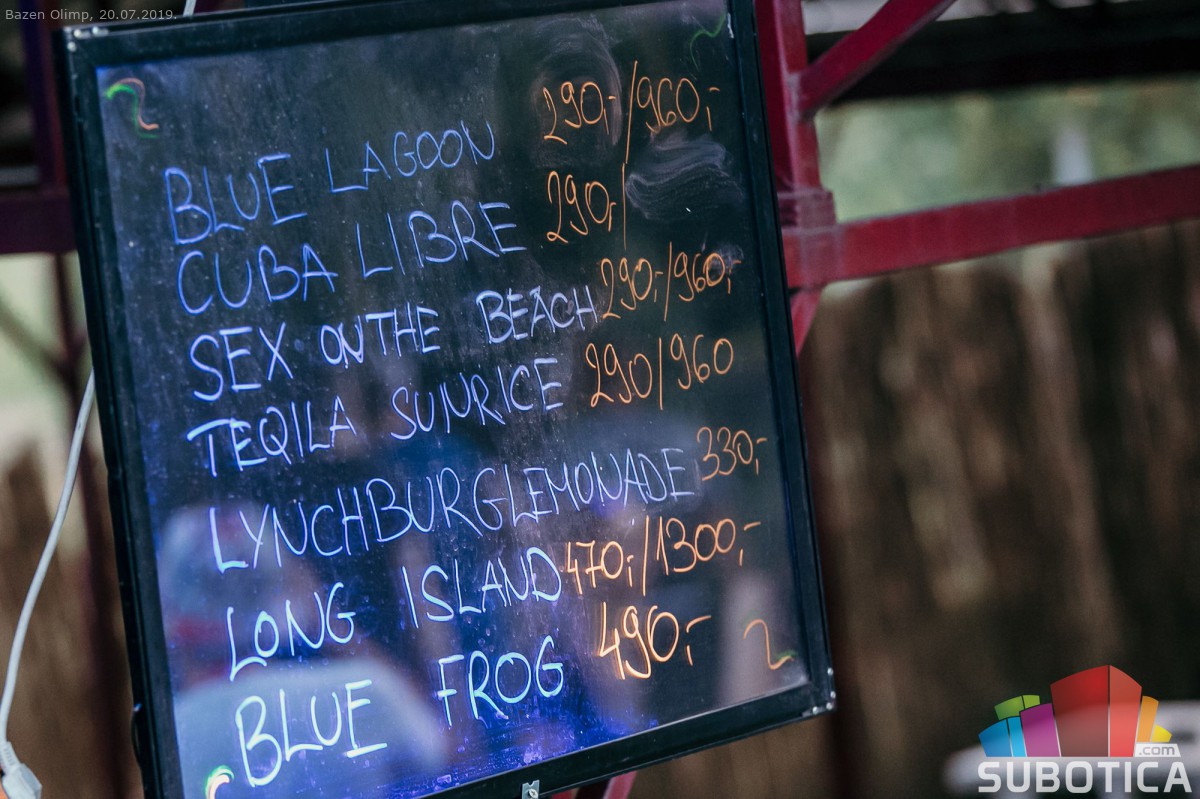 Bazen Olimp, 20.07.2019.
BLUE LAGOON 290,-/960,-
CUBA LIBRE 290,-/
SEX ON THE BEACH 290,-/960,-
TEQILA SUNRICE 290/960
LYNCHBURG LEMONADE 330,-
LONG ISLAND 470,-/1300,-
BLUE FROG 490,-
.com
SUBOTICA